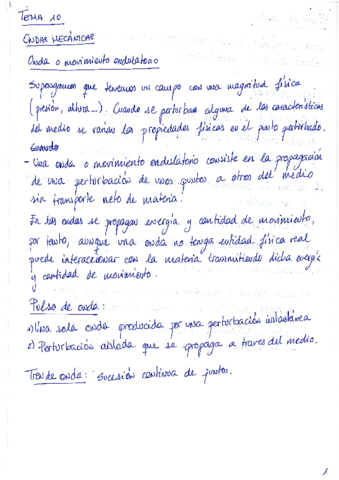 TEMA 10
ONDAS MECÁNICAS
Onda o movimiento ondulatorio
Supongamos que tenemos un campo con una magnitud física
(presión, altura...). Cuando se perturban alguna de las características
del medio se varían las propiedades físicas en el punto perturbado.
Cuando
- Una onda o movimiento ondulatorio consiste en la propagación
de una perturbación de unos puntos a otros del medio
sin transporte neto de materia.
En las ondas se propagan energía y cantidad de movimiento,
por tanto, aunque una onda no tenga entidad física real
puede interaccionar con la materia transmitiendo dicha energía
y cantidad de movimiento.
Pulso de onda:
1) Una sola onda producida por una perturbación instantánea
2) Perturbación aislada que se propaga a traves del medio.
Tren de onda: Sucesión continua de puntos.
1